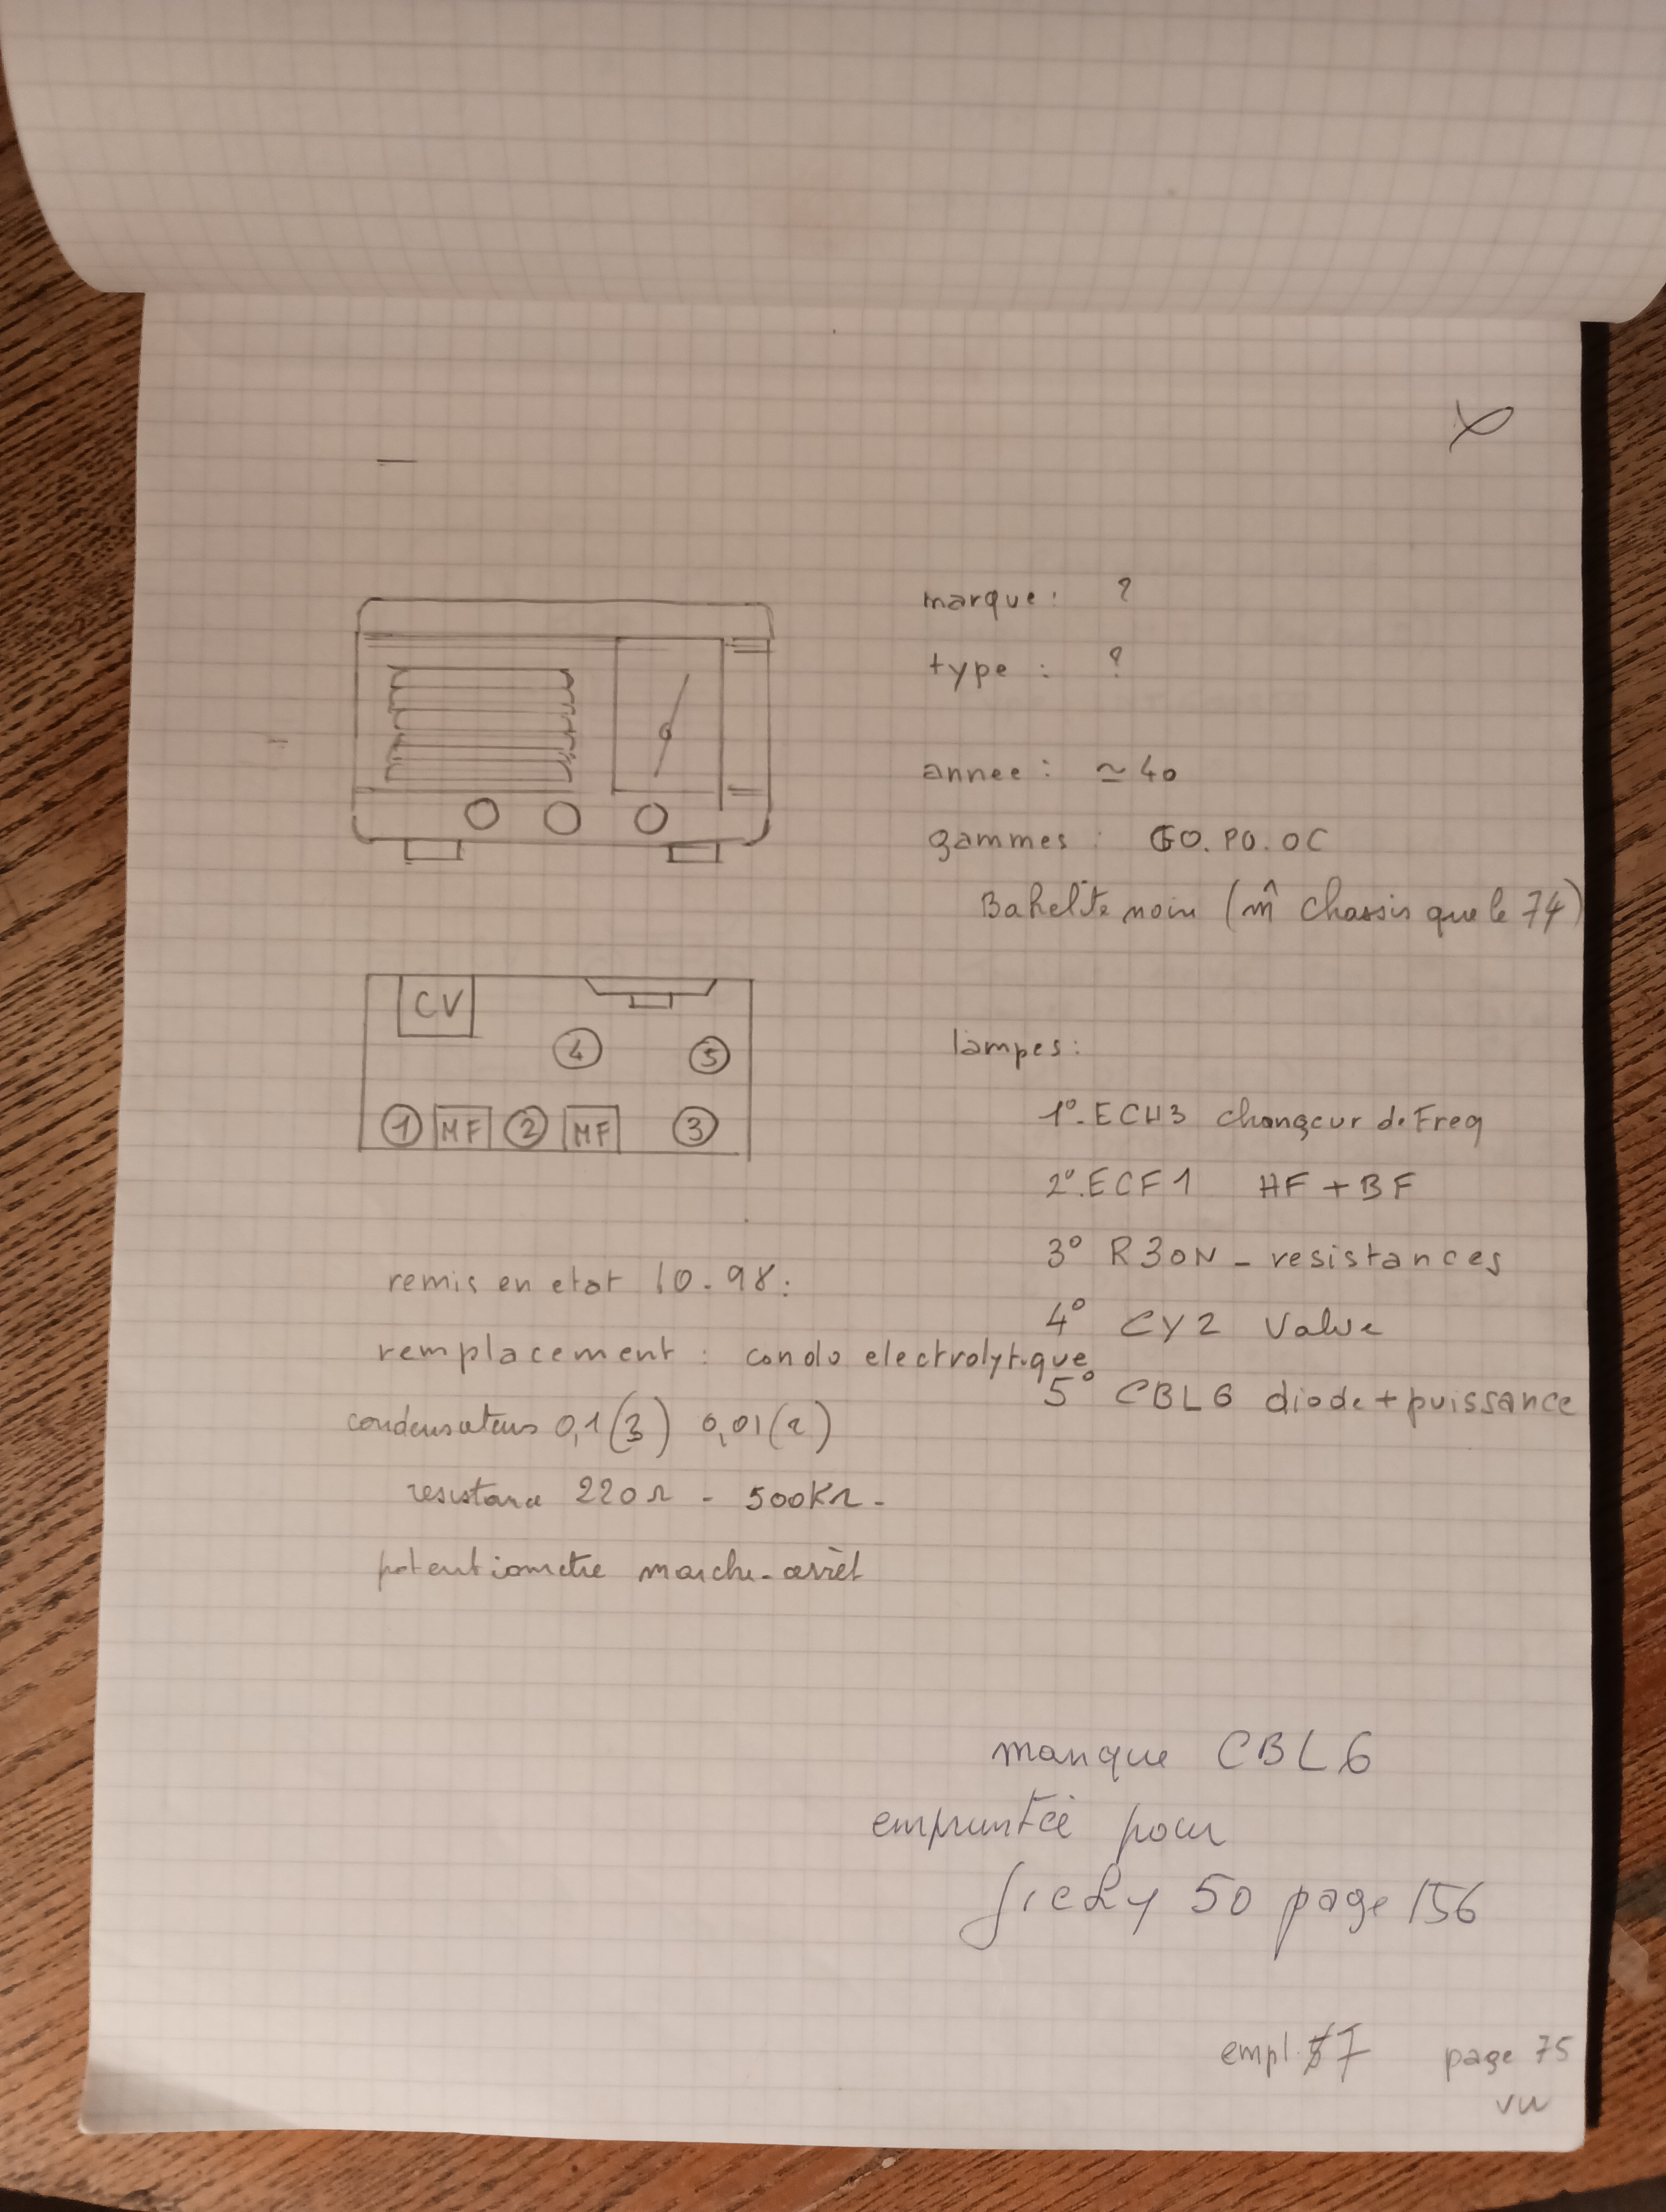 marque : ?
type : ?
annee : ≃ 40
gammes : GO. PO. OC
Bakelite noir (m̂ chassis que le 74)
CV
4
5
1 MF 2 MF 3
lampes :
1° - ECH3 changeur de Freq
2°. ECF1 HF + BF
3° R30N - resistances
4° CY2 Valve
5° CBL6 diode + puissance
remis en etat 10.98 :
remplacement : condo electrolytique
condensateurs 0,1 (3) 0,01 (2)
resistance 220Ω - 500KΩ -
potentiometre marche-arrêt
manque CBL6
empruntée pour
50 page 156
empl. 7 page 75
vu